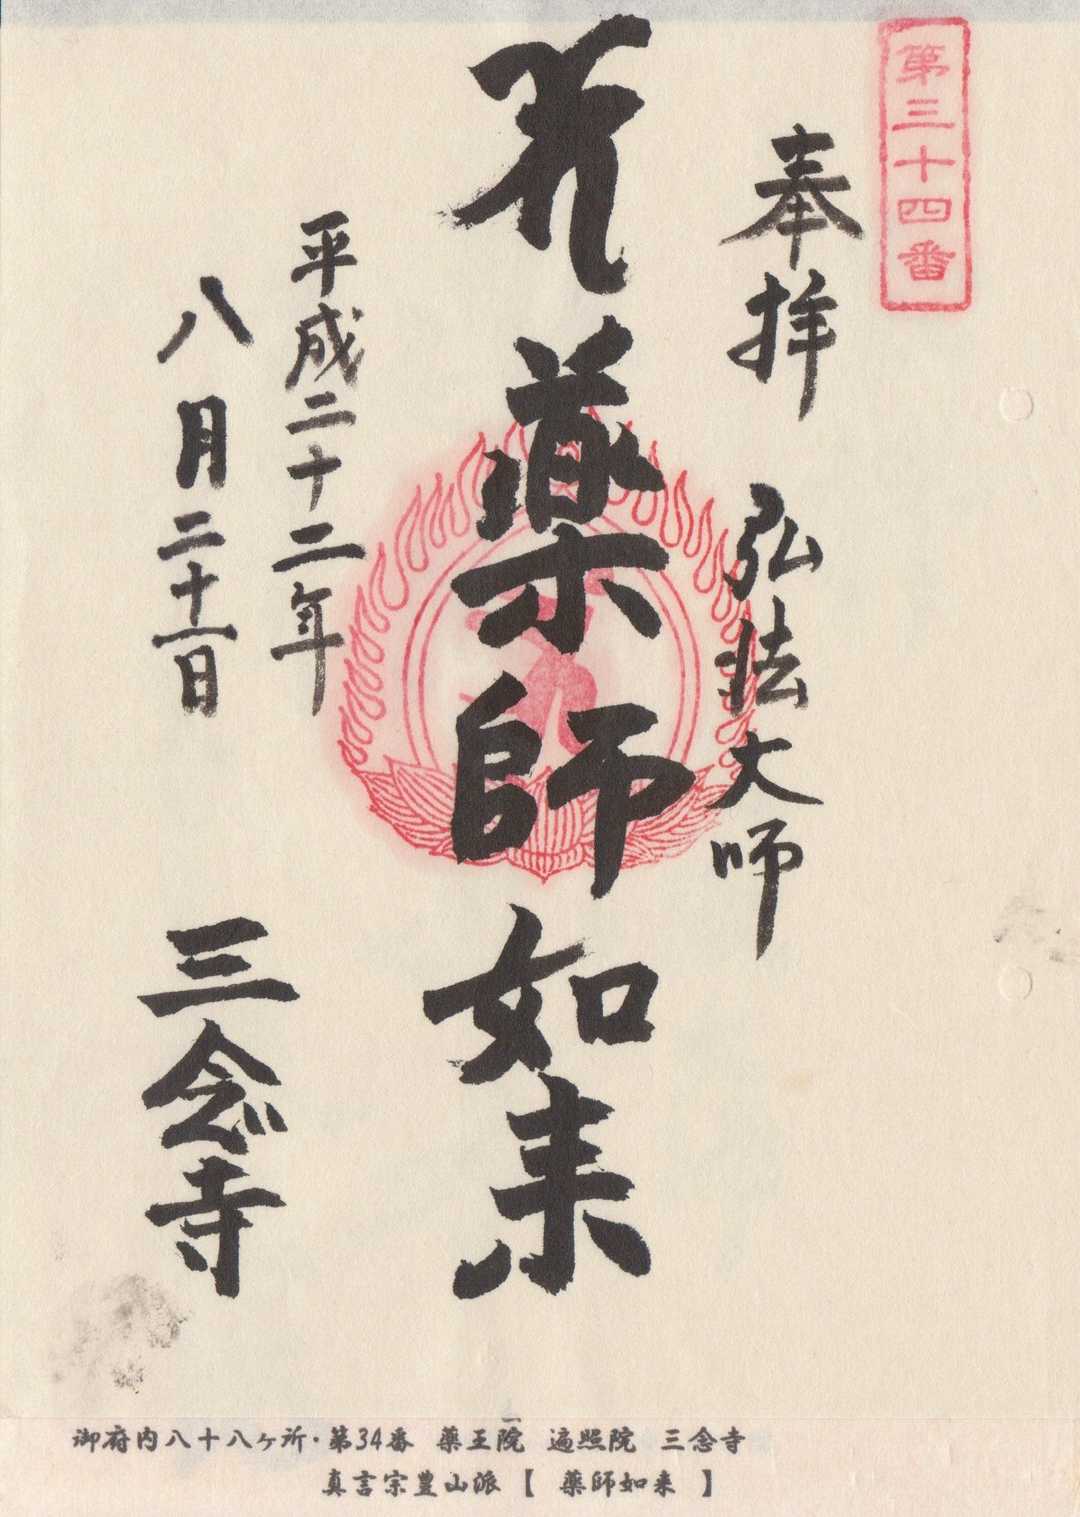 第三十四番
奉拝 弘法大師
薬師如来
平成二十二年
八月二十一日
三念寺
御府内八十八ヶ所・第34番 薬王院 遍照院 三念寺
真言宗豊山派【 薬師如来 】